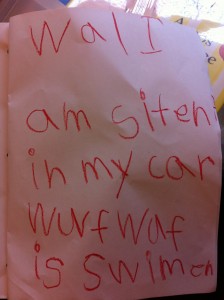 wal I
am siten
in my car
wurf waf
is swimen